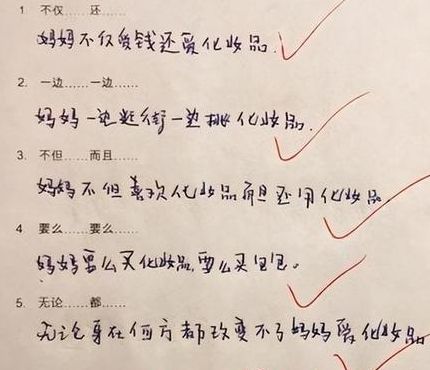 1 不仅……还……
妈妈不仅爱钱还爱化妆品.
2. 一边……一边……
妈妈一边逛街一边挑化妆品.
3. 不但……而且……
妈妈不但喜欢化妆品而且还用化妆品
4 要么……要么……
妈妈要么买化妆品,要么买包包。
5. 无论……都……
无论身在何方都改变不了妈妈爱化妆品